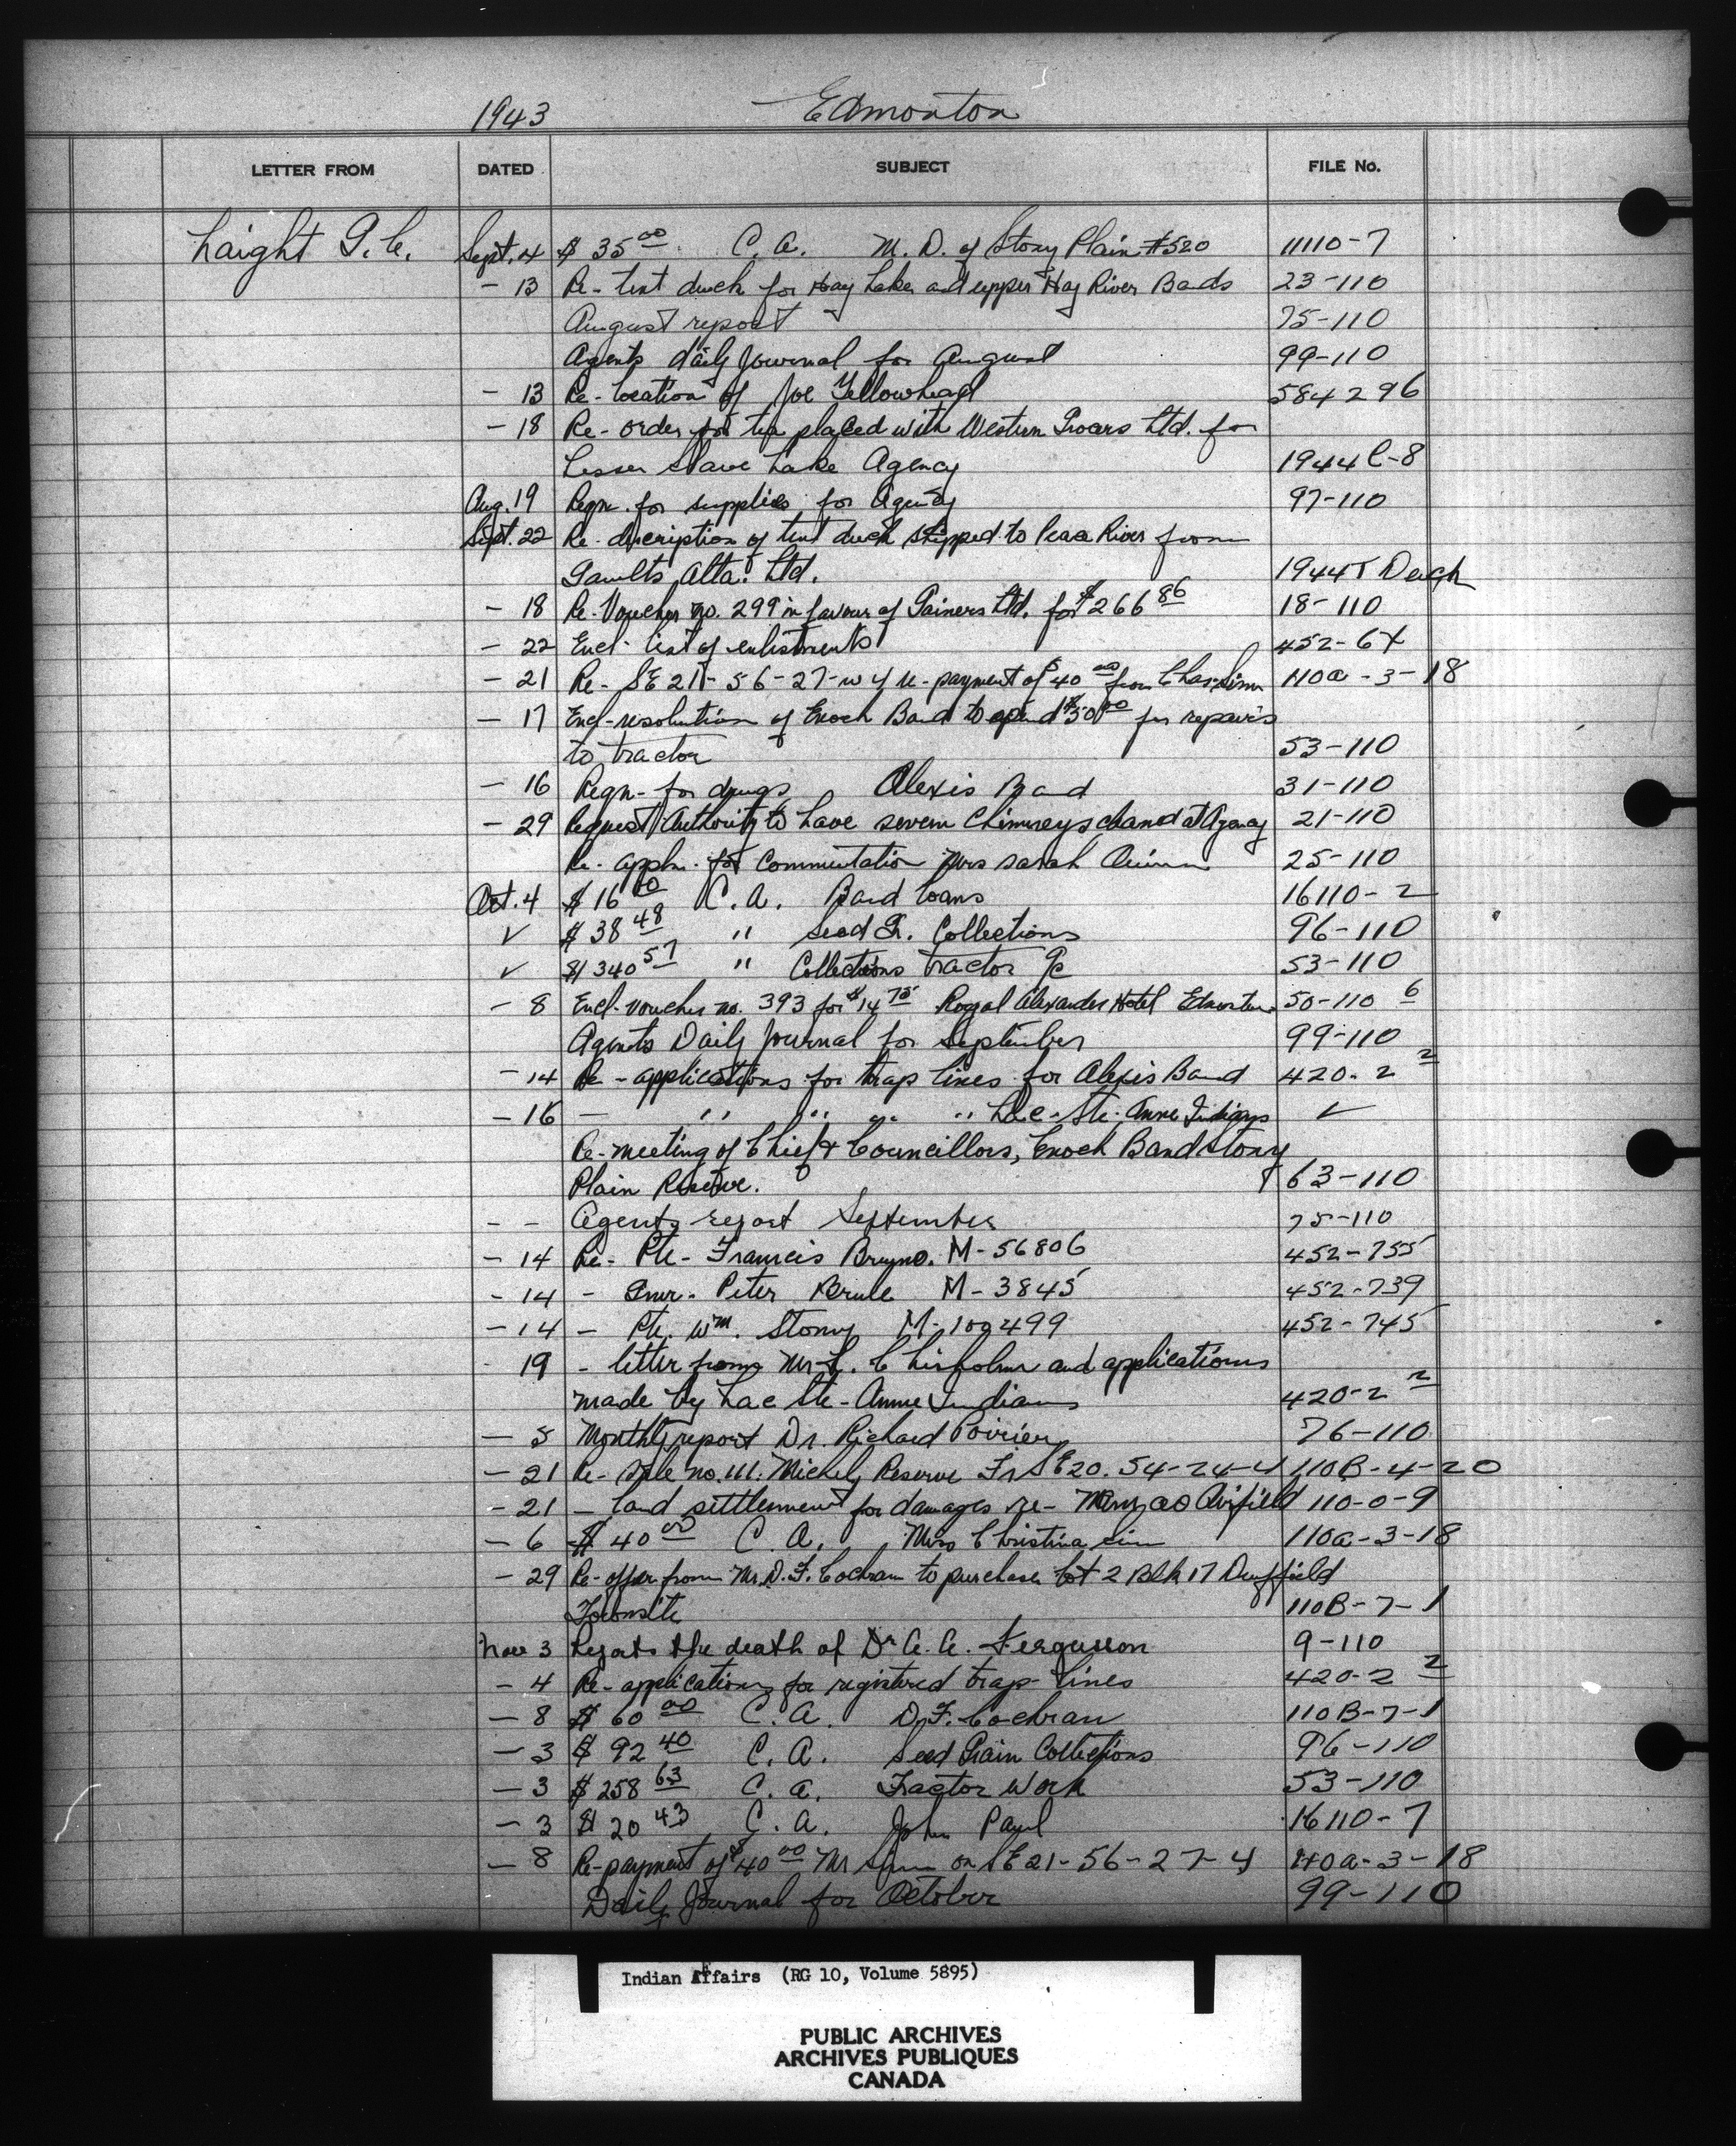 1943 Edmonton
LETTER FROM DATED SUBJECT FILE No.
Laight G. C. Sept. 4 $ 35 00 C. A. M. D. of Stony Plain #520 11110-7
- 13 Re- tent duck for Hay Lakes and upper Hay River Bands 23-110
August report 75-110
Agents daily Journal for August 99-110
- 13 Re- location of Joe Yellowhead 584296
- 18 Re- order for tea placed with Western Grocers Ltd. for
Lesser Slave Lake Agency 1944 C-8
Aug. 19 Reqn. for supplies for Agency 97-110
Sept. 22 Re- description of tent duck shipped to Peace River from
Gaults Alta. Ltd. 1944T
- 18 Re- Voucher no. 299 in favour of Gainers Ltd. for $266 86 18-110
- 22 Encl. list of enlistments 452-6X
- 21 Re- SE 21-56-27-w4 re-payment of $40 00 from Chas. 110a-3-18
- 17 Encl-resolution of Enoch Band to spend $50 00 for repairs
to tractor 53-110
- 16 Reqn- for drugs Alexis Band 31-110
- 29 Request Authority to have seven Chimneys cleaned at Agency 21-110
Re- appln. for Commutation Mrs Sarah Quinn 25-110
Oct. 4 $ 16 00 C. A. Band loans 16110-2
✓ $ 38 48 " Seed Gr. Collections 96-110
✓ $ 340 57 " Collections tractor 53-110
- 8 Encl- voucher no. 393 for $14 75 Royal Alexander Hotel Edmonton 50-110 6
Agents Daily Journal for September 99-110
- 14 Re- applications for trap lines for Alexis Band 420-2 2
- 16 - " " " " Lac Ste. Anne Indians ✓
Re- meeting of Chief & Councillors, Enoch Band Stony
Plain Reserve. 63-110
- - Agents report September 75-110
- 14 Re- Pte- Francis Bruno. M-56806 452-755
- 14 - Gnr. Peter Brule M-3845 452-739
- 14 - Pte. Wm. Stony M-109499 452-745
- 19 - letter from Mr. Chisholm and applications
made by Lac Ste- Anne Indians 420-2 2
- 5 Monthly report Dr. Richard Poirier 76-110
- 21 Re- Sale no. 111. Michel Reserve Fr SE20. 54-24-4 110B-4-20
- 21 - land settlement for damages re- Airfield 110-0-9
- 6 $ 40 00 C. A. Mrs Christina 110a-3-18
- 29 Re- offer from Mr. D. F. Cochran to purchase Lot 2 Blk 17 Duffield
Townsite 110B-7-1
Nov 3 Reports the death of Dr A. A. Ferguson 9-110
- 4 Re- applications for registered trap lines 420-2 2
- 8 $ 60 00 C. A. D. F. Cochran 110B-7-1
- 3 $ 92 40 C. A. Seed Grain Collections 96-110
- 3 $ 258 63 C. A. Tractor Work 53-110
- 3 $ 20 43 C. A. John Paul 16110-7
- 8 Re- payment of $40 00 Mr on SE 21-56-27-4 110a-3-18
Daily Journal for October 99-110
Indian Affairs (RG 10, Volume 5895)
PUBLIC ARCHIVES
ARCHIVES PUBLIQUES
CANADA